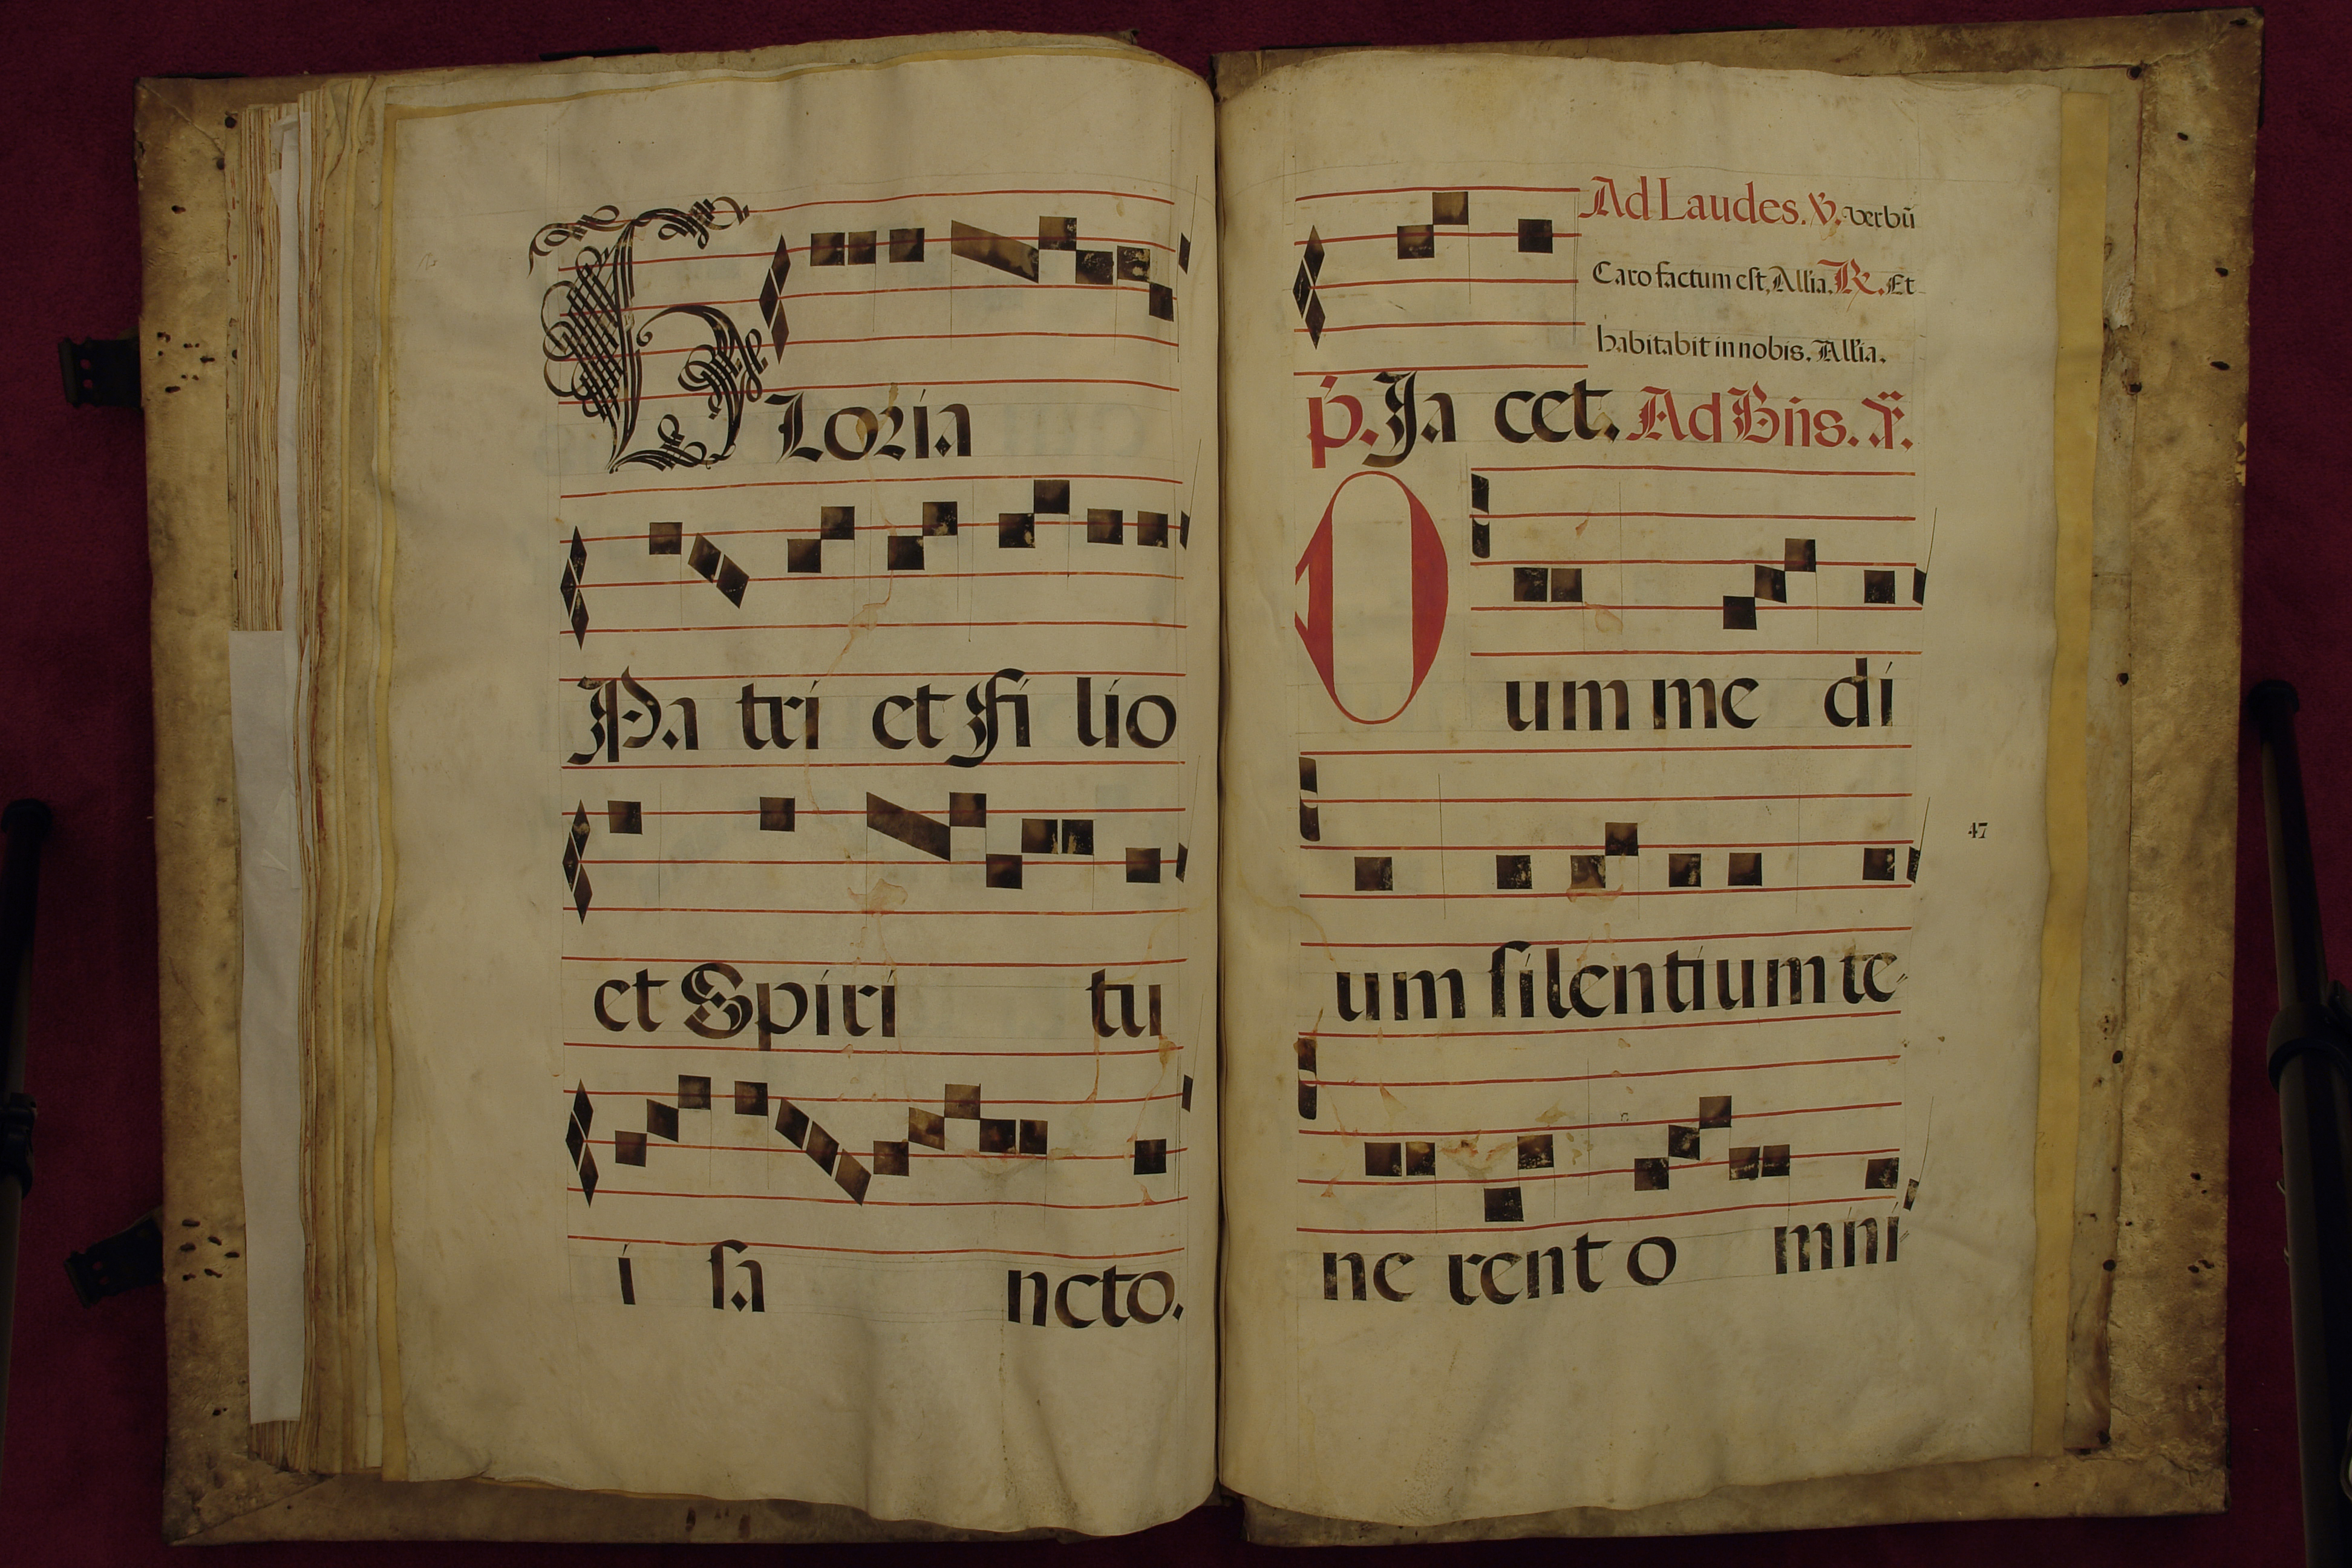 GLoria
Pa tri et Fi lio
et Spiri tu
i sa ncto.
Ad Laudes. V. verbũ
Caro factum est, All'ia. R. Et
habitabit in nobis. All'ia.
p. Ja cet. Ad Bñs. ã.
Dum me di
um silentium te-
ne rent o mni
47